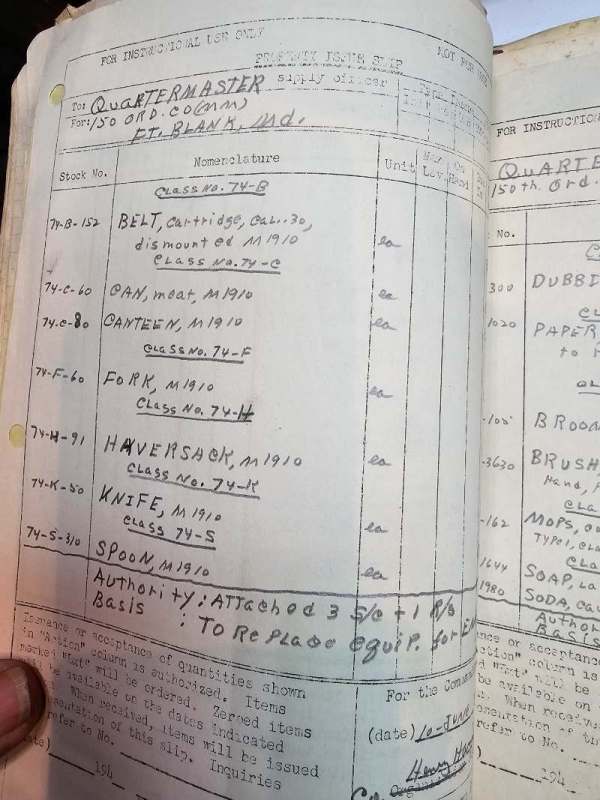 FOR INSTRUCTIONAL USE ONLY
NOT FOR
PROPERTY ISSUE SLIP
To: QuaRTERMASTER supply officer
For: 150 ORD. CO (MM)
FT. BLANK, Md.
Stock No. Nomenclature Unit
CLASS NO. 74-B
74-B-152 BELT, Cartridge, CaL..30,
dismounted M1910 ea
CLASS NO. 74-C
74-C-60 CAN, meat, M1910 ea
74-C-80 CANTEEN, M1910 ea
CLASS NO. 74-F
74-F-60 FORK, M1910 ea
CLASS NO. 74-H
74-H-91 HAVERSACK, M1910 ea
CLASS NO. 74-K
74-K-50 KNIFE, M1910 ea
CLASS 74-S
74-S-310 SPOON, M1910 ea
Authority: ATTached 3 S/C + 1 R/S
Basis : To RePlace equip. for
Issuance or acceptance of quantities shown
in "Action" column is authorized. Items
marked will be ordered. Zeroed items
will be available on the dates indicated
When received, items will be issued
of this slip. Inquiries
refer to No.
194
For the
(date) 10-June
Henry
FOR INSTRUCTION
QUARTE
150th. Ord.
No.
300 DUBBI
1020 PAPER,
to
-105 BROOM
-3630 BRUSH,
Hand,
-162 MOPS,
Type I,
1644 SOAP, La
1980 SODA, Ca
AUTHOR
BASIS
or acceptance
column is
be available on
When received
refer to No.
194